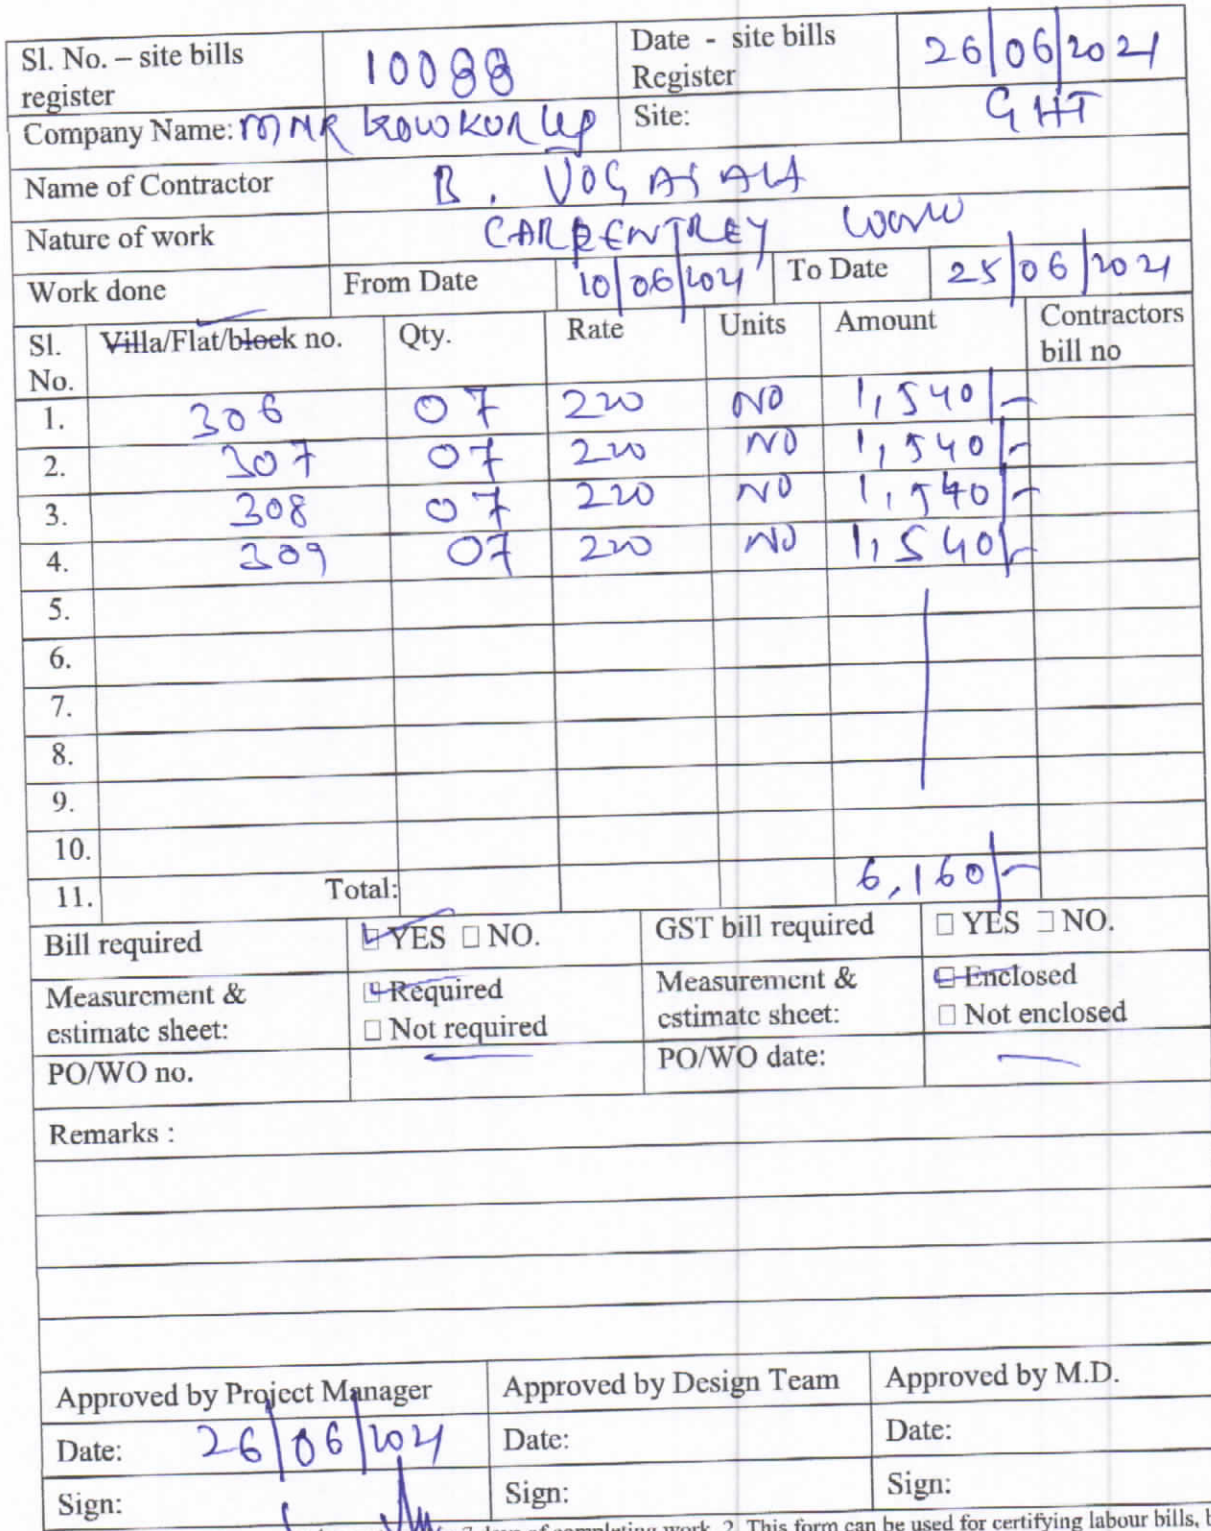 Sl. No. – site bills register 10088 Date - site bills Register 26/06/2021
Company Name: MNR KOWKUR LLP Site: GHT
Name of Contractor B. VOGASALA
Nature of work CARPENTREY WORK
Work done From Date 10/06/2021 To Date 25/06/2021
Sl. No. Villa/Flat/block no. Qty. Rate Units Amount Contractors bill no
1. 306 07 220 NO 1,540/-
2. 307 07 220 NO 1,540/-
3. 308 07 220 NO 1,540/-
4. 309 07 220 NO 1,540/-
5.
6.
7.
8.
9.
10.
11. Total: 6,160/-
Bill required ☑ YES ☐ NO. GST bill required ☐ YES ☐ NO.
Measurement & estimate sheet: ☑ Required ☐ Not required Measurement & estimate sheet: ☑ Enclosed ☐ Not enclosed
PO/WO no. — PO/WO date: —
Remarks :
Approved by Project Manager Approved by Design Team Approved by M.D.
Date: 26/06/2021 Date: Date:
Sign: Sign: Sign:
days of completing work. 2. This form can be used for certifying labour bills, b